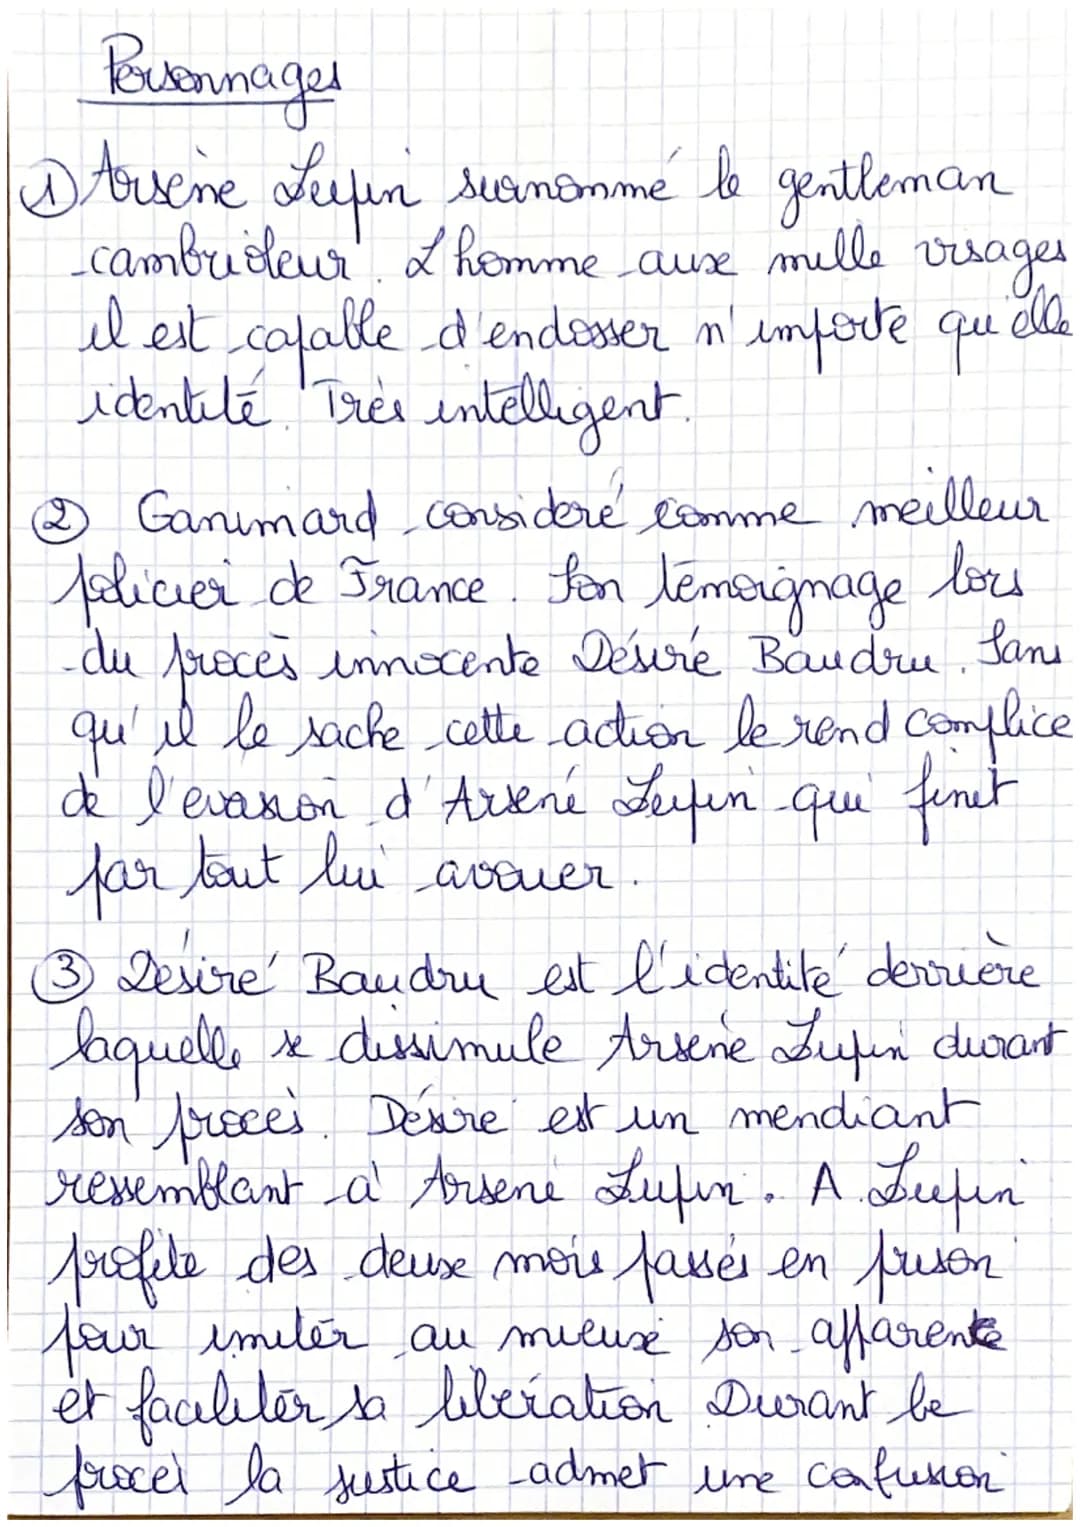 Personnages
① Arsène Lupin surnommé le gentleman
cambrioleur. L'homme aux mille visages
il est capable d'endosser n'importe qu'elle
identité. Très intelligent.
② Ganimard consideré comme meilleur
policier de France. Son témoignage lors
du procès innocente Désiré Baudru. Sans
qu'il le sache cette action le rend complice
de l'evasion d'Arsène Lupin qui finit
par tout lui avouer.
③ Désiré Baudru est l'identité derrière
laquelle se dissimule Arsène Lupin durant
son procès. Désiré est un mendiant
ressemblant à Arsène Lupin. A. Lupin
profite des deux mois passés en prison
pour imiter au mieux son apparente
et faciliter sa libération Durant le
procès la justice admet une confusion